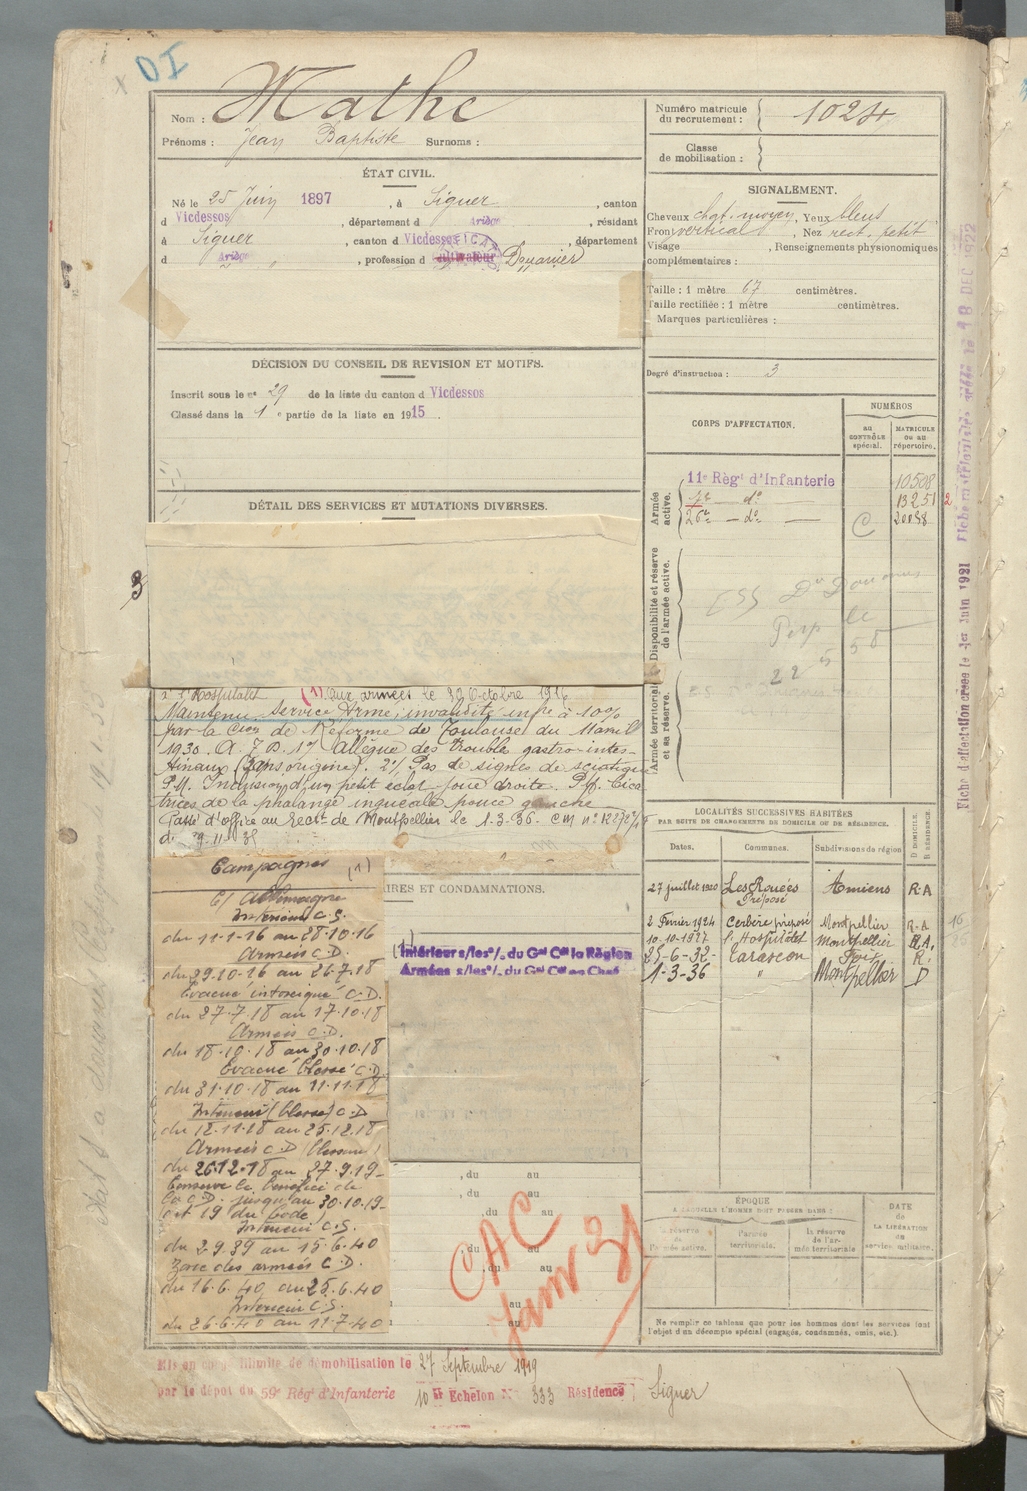 DI
Nom : Mathe
Prénoms : Jean Baptiste Surnoms :
ÉTAT CIVIL.
Né le 25 Juin 1897 , à Siguer , canton
d Vicdessos , département d Ariège , résidant
à Siguer , canton d Vicdessos , département
d Ariège , profession d cultivateur Douanier
DÉCISION DU CONSEIL DE REVISION ET MOTIFS.
Inscrit sous le n° 29 de la liste du canton d Vicdessos
Classé dans la 1 e partie de la liste en 1915 .
DÉTAIL DES SERVICES ET MUTATIONS DIVERSES.
3
l'Hospitalet (1) aux armées le 29 Octobre 1916
Maintenu Service Armé, invalidité infre à 10%
par la Cion de Réforme de Toulouse du
1930. 1°/ Allègue des trouble gastro-intes-
tinaux (Sans origine). 2°/ Pas de signes de sciatique
Pff. Inclusion d'un petit éclat joue droite. Pff. Cica
trices de la phalange unguéale pouce gauche
Passé d'office au Recrt de Montpellier le 1.3.36.
Campagnes (1)
C/ Allemagne
Intérieur C.S.
du 11-1-16 au 28.10.16
Armées C.D.
du 29.10.16 au 26.7.18
Evacué intoxiqué C.D.
du 27.7.18 au 17.10.18
Armées C.D.
du 18.10.18 au 30.10.18
Evacué blessé C.D
du 31.10.18 au 11.11.18
Intérieur (blessé) C.D
du 12.11.18 au 25.12.18
Armées C.D (blessure)
du 26.12.18 au 27.9.19
Conserve le bénéfice de
la C.D. jusqu'au 30.10.19
Intérieur C.S.
du 2 9.39 au 15.6.40
Zone des armées C.D.
du 16.6.40 au 25.6.40
Intérieur C.S.
du 26.6.40 au 11.7.40
AIRES ET CONDAMNATIONS.
(1)
Intérieur s/les o/. du Gal Ct la Région
Armées s/les o/. du Gal Ct en Chef
, du au
, du au
, du au
, du au
au
au
CAC
Janv 31
Mis en congé illimité de démobilisation le 27 Septembre 1919
par le dépôt du 59e Régt d'Infanterie 10e Echelon N° 333 Résidence Siguer
Numéro matricule
du recrutement : 1024
Classe
de mobilisation :
SIGNALEMENT.
Cheveux chat. moyen , Yeux bleus
Front vertical , Nez rect. petit
Visage , Renseignements physionomiques
complémentaires :
Taille : 1 mètre 67 centimètres.
Taille rectifiée : 1 mètre centimètres.
Marques particulières :
Degré d'instruction : 3
CORPS D'AFFECTATION.
NUMÉROS
au
CONTRÔLE
spécial.
MATRICULE
ou au
répertoire.
Armée
active.
11e Règt d'Infanterie 10508
7e — do — 13251 2
26e — do — C
Disponibilité et réserve
de l'armée active.
Douanes
Perp
22 5 50
Armée territoriale
et sa réserve.
LOCALITÉS SUCCESSIVES HABITÉES
PAR SUITE DE CHANGEMENTS DE DOMICILE OU DE RÉSIDENCE.
Dates. Communes. Subdivisions de région D DOMICILE. R RÉSIDENCE
27 juillet 1920 Les Rouées Amiens R.A
Préposé
2 Février 1924 Cerbère préposé Montpellier R.A
10-10-1927 l'Hospitalet Montpellier R.A.
25-6-32- Tarascon Foix R.
1-3-36 " Montpellier D
ÉPOQUE
À LAQUELLE L'HOMME DOIT PASSER DANS :
la réserve
de
l'armée active.
l'armée
territoriale.
la réserve
de l'ar-
mée territoriale
DATE
de
LA LIBÉRATION
du
service militaire.
Ne remplir ce tableau que pour les hommes dont les services font
l'objet d'un décompte spécial (engagés, condamnés, omis, etc.).
Fiche d'affectation créée le 1er Juin 1921
18 DEC 1922